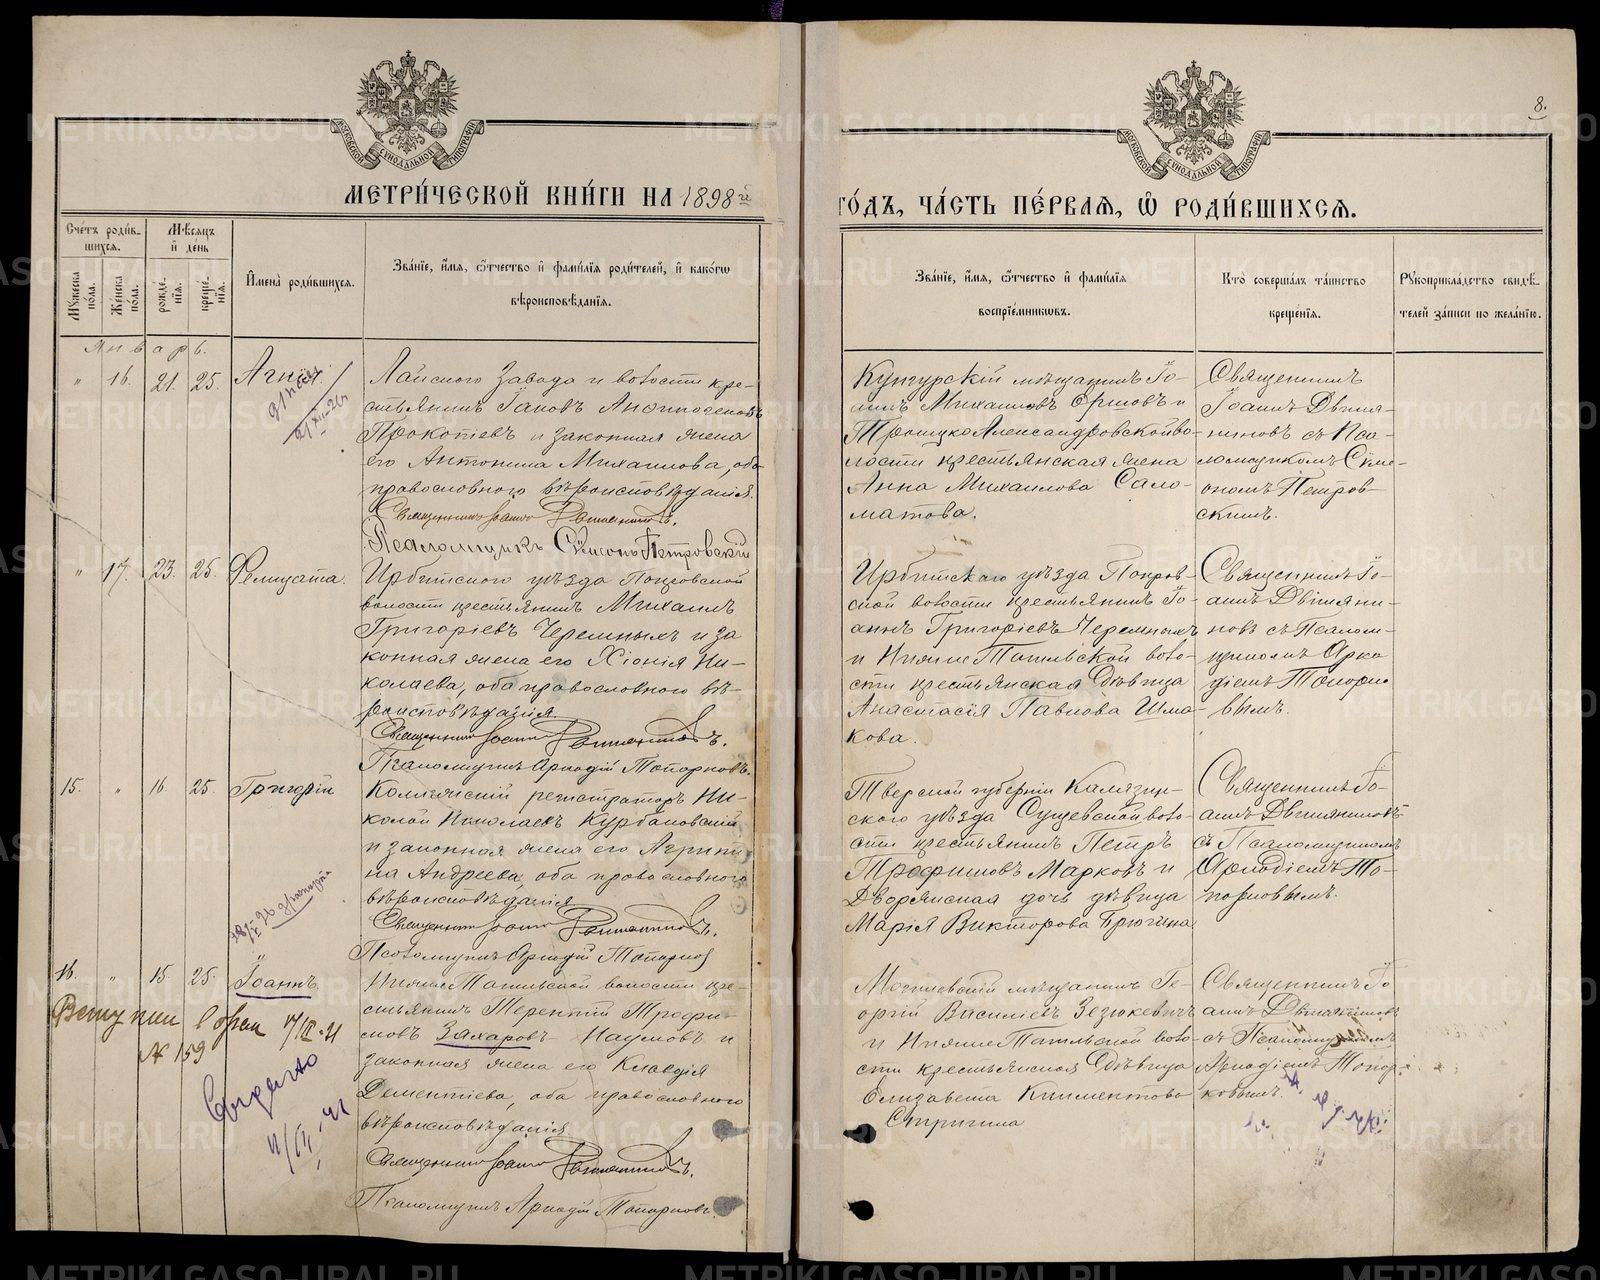 8.
МЕТРИ́ЧЕСКОЙ КНИ́ГИ НА 1898й
ГО́ДЪ, ЧА́СТЬ ПЕ́РВАЯ, Ѡ РОДИ́ВШИХСЯ.
МОСКОВСКОЙ СѴНОДАЛЬНОЙ ТИПОГРАФІИ
МОСКОВСКОЙ СѴНОДАЛЬНОЙ ТИПОГРАФІИ
Сче́тъ роди́вшихся.
Му́жеска по́ла.
Же́нска по́ла.
Мѣ́сяцъ и де́нь
рожде́нія.
креще́нія.
Имена̀ роди́вшихся.
Зва́ніе, и́мя, ѻ́тчество и фами́лія роди́телей, и како́гѡ
вѣроисповѣ́данія.
Зва́ніе, и́мя, ѻ́тчество и фами́лія
воспріе́мникѡвъ.
Кто̀ соверша́лъ та́инство
креще́нія.
Рукоприкла́дство свидѣ́-
телей за́писи по жела́нію.
Январь.
" 16. 21. 25. Агнія.
Лайского Завода и волости кре-
стьянинъ Іаковъ
Прокопіевъ и законная жена
его Антонина Михаилова, оба
православного вѣроисповѣданія.
Священникъ Іоаннъ Двиняниновъ.
Псаломщикъ Сѵмеонъ Петровскій
Кунгурскій мѣщанинъ Іо-
аннъ Михаиловъ Ершовъ и
Троицко Александровской во-
лости крестьянская жена
Анна Михаилова Сало-
матова.
Священникъ
Іоаннъ Двиня-
ниновъ съ Пса-
ломщикомъ Сѵме-
ономъ Петров-
скимъ.
" 17. 23. 25. Фелицата.
Ирбитского уѣзда Покровской
волости крестьянинъ Михаилъ
Григоріевъ Черемныхъ и за
конная жена его Хіонія Ни-
колаева, оба православного вѣ-
роисповѣданія.
Священникъ Іоаннъ Двиняниновъ.
Псаломщикъ Аркадій Топорковъ.
Ирбитскаго уѣзда Покров-
ской волости крестьянинъ Іо-
аннъ Григоріевъ Черемныхъ
и Нижне Тагильской воло-
сти крестьянская дѣвица
Анастасія Павлова Шма-
кова.
Священникъ Іо-
аннъ Двиняни-
новъ съ Псалом-
щикомъ Арка
діемъ Топорко
вымъ.
15. " 16. 25. Григорій
Коллежскій регистраторъ Ни-
колай Николаевъ Курбановскій
и законная жена его Агрипи-
на Андреева, оба православного
вѣроисповѣданія.
Священникъ Іоаннъ Двиняниновъ.
Псаломщикъ Аркадій Топорков
Тверской губерніи Калязин-
ского уѣзда Сущевской воло-
сти крестьянинъ Петръ
Трофимовъ Марковъ и
Дворянская дочь дѣвица
Марія Викторова Брюхина
Священникъ Іо-
аннъ Двинянинов
съ Псаломщикомъ
Аркадіемъ То-
порковымъ.
16. " 15. 25. Іоаннъ.
Нижне Тагильской волости кре-
стьянинъ Терентій Трофи-
мовъ Захаровъ Наумовъ и
законная жена его Клавдія
Дементіева, оба православного
вѣроисповѣданія
Священникъ Іоаннъ Двиняниновъ.
Псаломщикъ Аркадій Топорковъ.
№ 159
Могилевскій мѣщанинъ Ге-
оргій Василіевъ Зезюкевичъ
и Нижне Тагильской воло-
сти крестьянская дѣвица
Елизавета Климентова
Стригина
Священникъ Іо
аннъ Двинянинов
съ Псаломщикомъ
Аркадіемъ Топор-
ковымъ.
METRIKI.GASO-URAL.RU